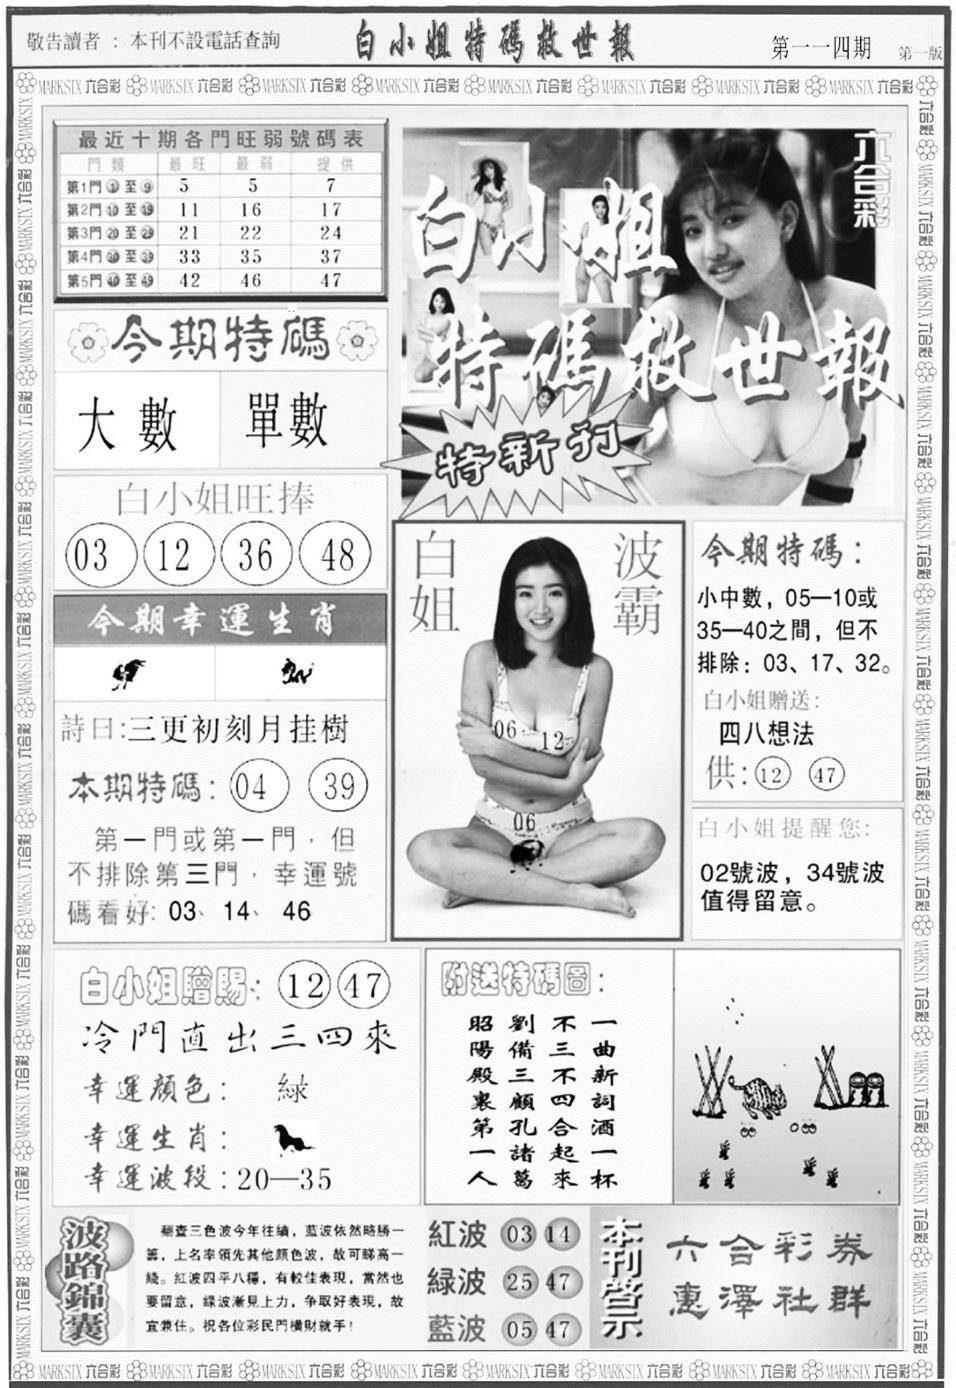 敬告讀者：本刊不設電話查詢
白小姐特碼救世報
第一一四期
第一版
MARKSIX 六合彩
最近十期各門旺弱號碼表
門類 最旺 最弱 提供
第1門 ① 至 ⑨ 5 5 7
第2門 ⑩ 至 ⑲ 11 16 17
第3門 ⑳ 至 ㉙ 21 22 24
第4門 ㉚ 至 ㊴ 33 35 37
第5門 ㊵ 至 ㊾ 42 46 47
今期特碼
大數 單數
白小姐旺捧
03 12 36 48
今期幸運生肖
詩曰:三更初刻月挂樹
本期特碼: 04 39
第一門或第一門，但
不排除第三門，幸運號
碼看好: 03、14、46
六合彩
白小姐
特碼救世報
特新刊
白姐
波霸
06
12
06
今期特碼：
小中數，05—10或
35—40之間，但不
排除：03、17、32。
白小姐贈送:
四八想法
供: 12 47
白小姐提醒您:
02號波，34號波
值得留意。
白小姐贈賜: 12 47
冷門直出三四來
幸運顏色: 緑
幸運生肖:
幸運波段:20—35
附送特碼圖:
一曲新詞酒一杯
不三不四合起來
劉備三顧孔諸葛
昭陽殿裏第一人
波路錦囊
翻查三色波今年往績，藍波依然略勝一
籌，上名率領先其他顏色波，故可睇高一
綫。紅波四平八穩，有較佳表現，當然也
要留意，緑波漸見上力，争取好表現，故
宜兼住。祝各位彩民門橫財就手!
紅波 03 14
緑波 25 47
藍波 05 47
本刊啓示
六合彩券
惠澤社群